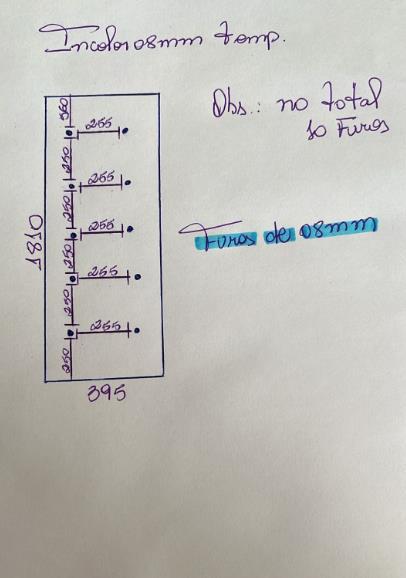 Incolor 08mm temp.
Obs.: no total
10 Furos
560
255
250
255
250
255
Furos de 08mm
1810
250
255
250
255
250
395